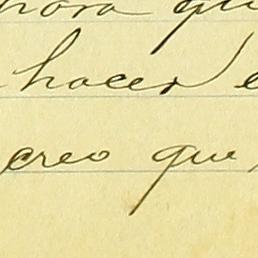 hora que
hacer e
creo que